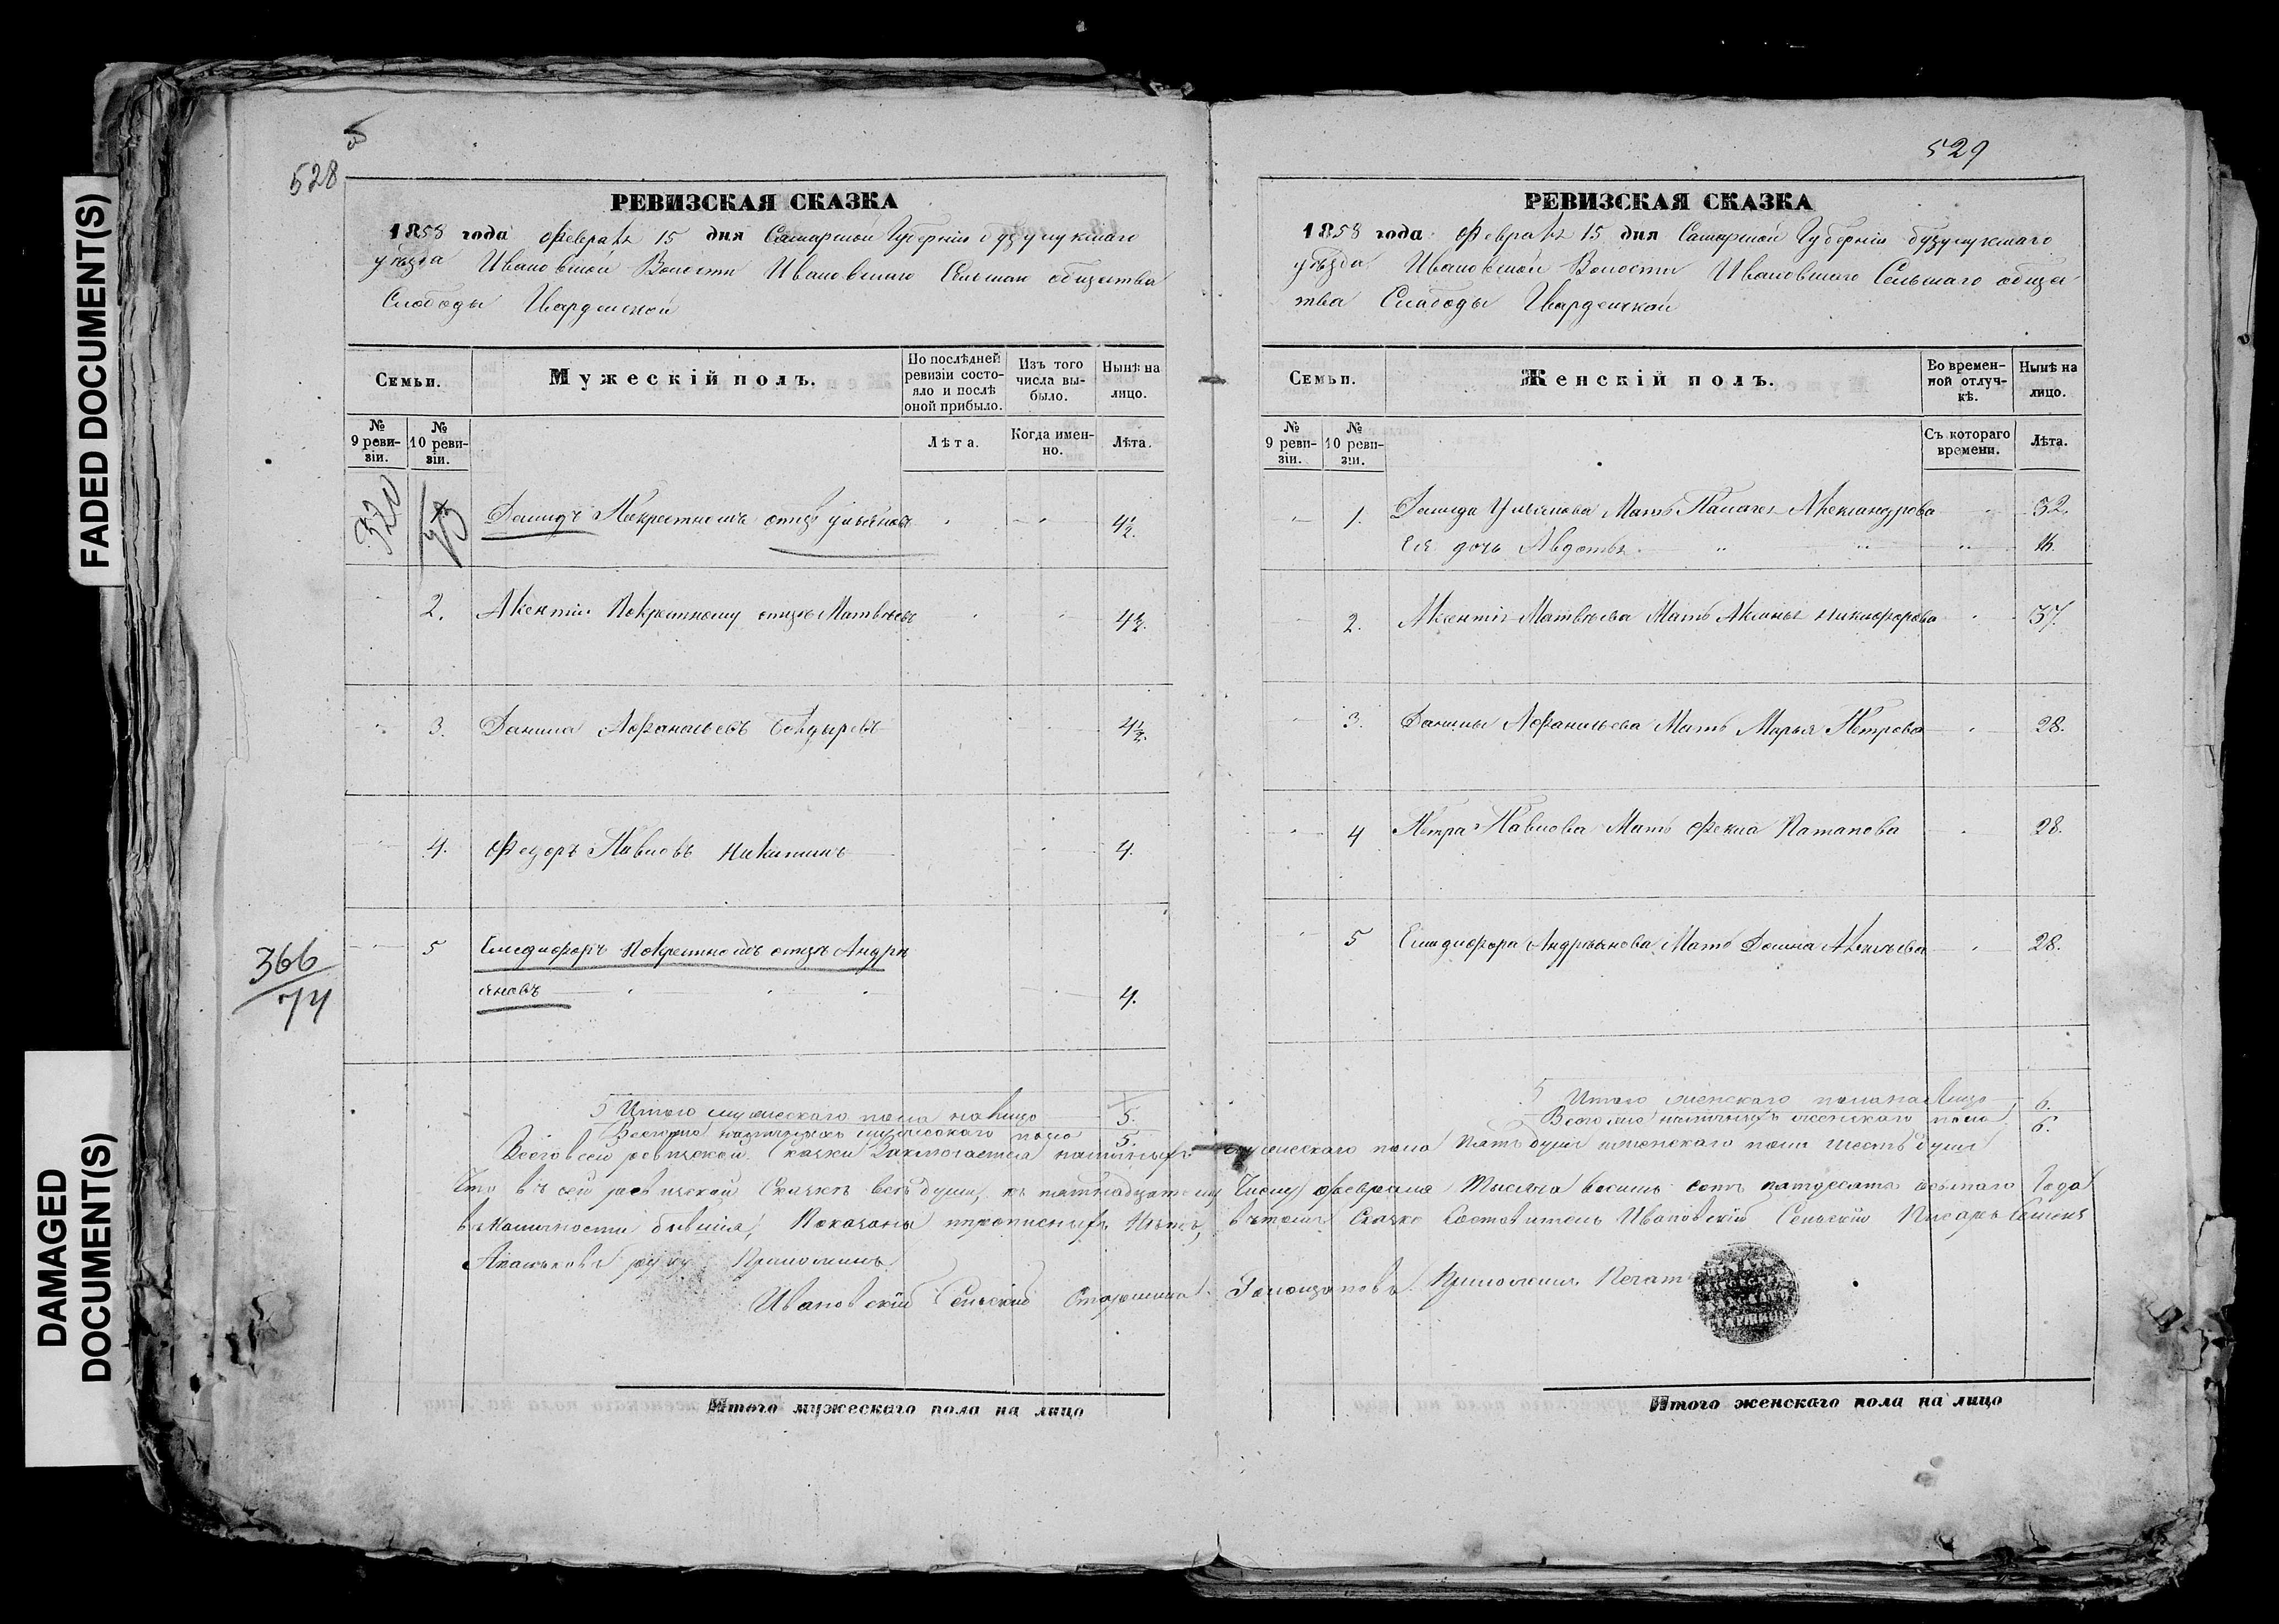 FADED DOCUMENT(S)
DAMAGED
DOCUMENT(S)
528
РЕВИЗСКАЯ СКАЗКА
1858 года Февраля 15 дня Самарской Губерніи Бузулукскаго
уѣзда Ивановской Волости Ивановскаго Сельскаго общества
Слободы Гвардейской
Семьи.
Мужескій полъ.
По послѣдней
ревизіи состо-
яло и послѣ
оной прибыло.
Изъ того
числа вы-
было.
Нынѣ на
лицо.
№
9 реви-
зіи.
№
10 реви-
зіи.
Лѣта.
Когда имен-
но.
Лѣта.
320
Демидъ Покрестному отцѣ Ульяновъ 4½.
2. Аксентій Покрестному отцѣ Матвѣевъ 4½.
3. Данила Афанасьевъ 4½.
4. Федоръ Павловъ Никитинъ 4.
5 Елидифоръ Покрестному отцѣ Андрі
яновъ 4.
366
74
5 Итого мужескаго пола на лицо 5.
Всего наличныхъ мужескаго пола 5.
Итого мужескаго пола на лицо
529
РЕВИЗСКАЯ СКАЗКА
1858 года Февраля 15 дня Самарской Губерніи Бузулукскаго
уѣзда Ивановской Волости Ивановскаго Сельскаго общес
тва Слабоды Гвардейской
Семьи.
Женскій полъ.
Во времен-
ной отлуч-
кѣ.
Нынѣ на
лицо.
№
9 реви-
зіи.
№
10 реви-
зіи.
Съ котораго
времени.
Лѣта.
1. Демида Ульянова Мать Палагея Александрова 32.
Ея дочь Авдотья 16.
2. Аксентія Матвѣева Мать Аксинья Никифорова 37.
3. Данилы Афанасьева Мать Марья Петрова 28.
4 Петра Павлова Мать Фекла Потапова 28.
5 Елидифора Андріянова Мать Домна Алексѣева 28.
5 Итого женскаго пола на лицо 6.
Всего наличныхъ женскаго пола 6.
Всего въ сей ревизской Сказки Заключается наличныхъ мужескаго пола Пять душъ женскаго пола шесть душъ
Что въ сей ревизской Сказкѣ всѣ души, къ пятнадцатому Числу февраля Тысяча восимь сотъ пятдесятъ восьмаго Года
въ наличности бывшія, Показаны въ томъ Сказкѣ Составитель Ивановскій Сельскій Писарь Семенъ
руку Приложилъ
Ивановскій Сельскій Старшина Приложилъ Печать
Итого женскаго пола на лицо